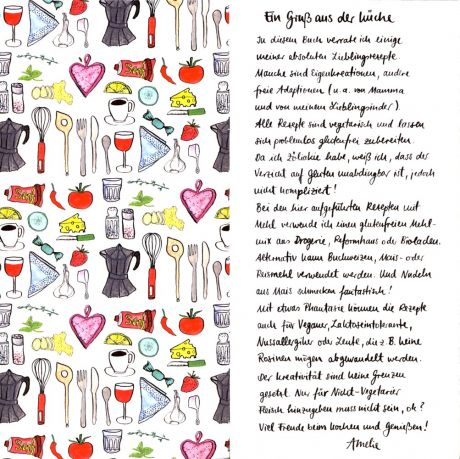 Ein Gruß aus der Küche
In diesem Buch verrate ich einige
meiner absoluten Lieblingsrezepte.
Manche sind Eigenkreationen, andere
freie Adaptionen (u.a. von Mamma
und von meinem Lieblingsinder!).
Alle Rezepte sind vegetarisch und lassen
sich problemlos glutenfrei zubereiten.
Da ich Zöliakie habe, weiß ich, dass der
Verzicht auf Gluten unabdingbar ist, jedoch
nicht kompliziert!
Bei den hier aufgeführten Rezepten mit
Mehl verwende ich einen glutenfreien Mehl-
mix aus Drogerie, Reformhaus oder Bioladen.
Alternativ kann Buchweizen, Mais- oder
Reismehl verwendet werden. Und Nudeln
aus Mais schmecken fantastisch!
Mit etwas Phantasie können die Rezepte
auch für Veganer, Laktoseintolerante,
Nussallergiker oder Leute, die z.B. keine
Rosinen mögen abgewandelt werden.
Der Kreativität sind keine Grenzen
gesetzt. Nur für Nicht-Vegetarier
Fleisch hinzugeben muss nicht sein, ok?
Viel Freude beim Kochen und Genießen!
Amelie